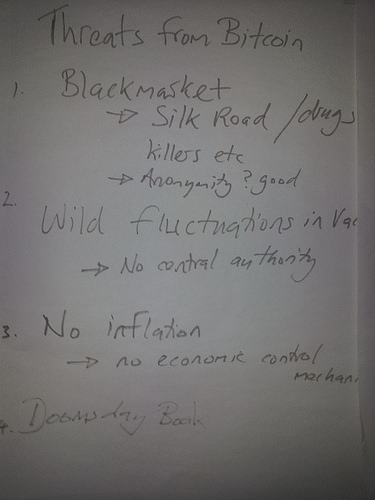 Threats from Bitcoin
1. Blackmarket
→ Silk Road / drugs
killers etc
→ Anonymity ? good
2.
Wild fluctuations in Va
→ No central authority
3. No inflation
→ no economic control
mechani
4. Doomsday Book